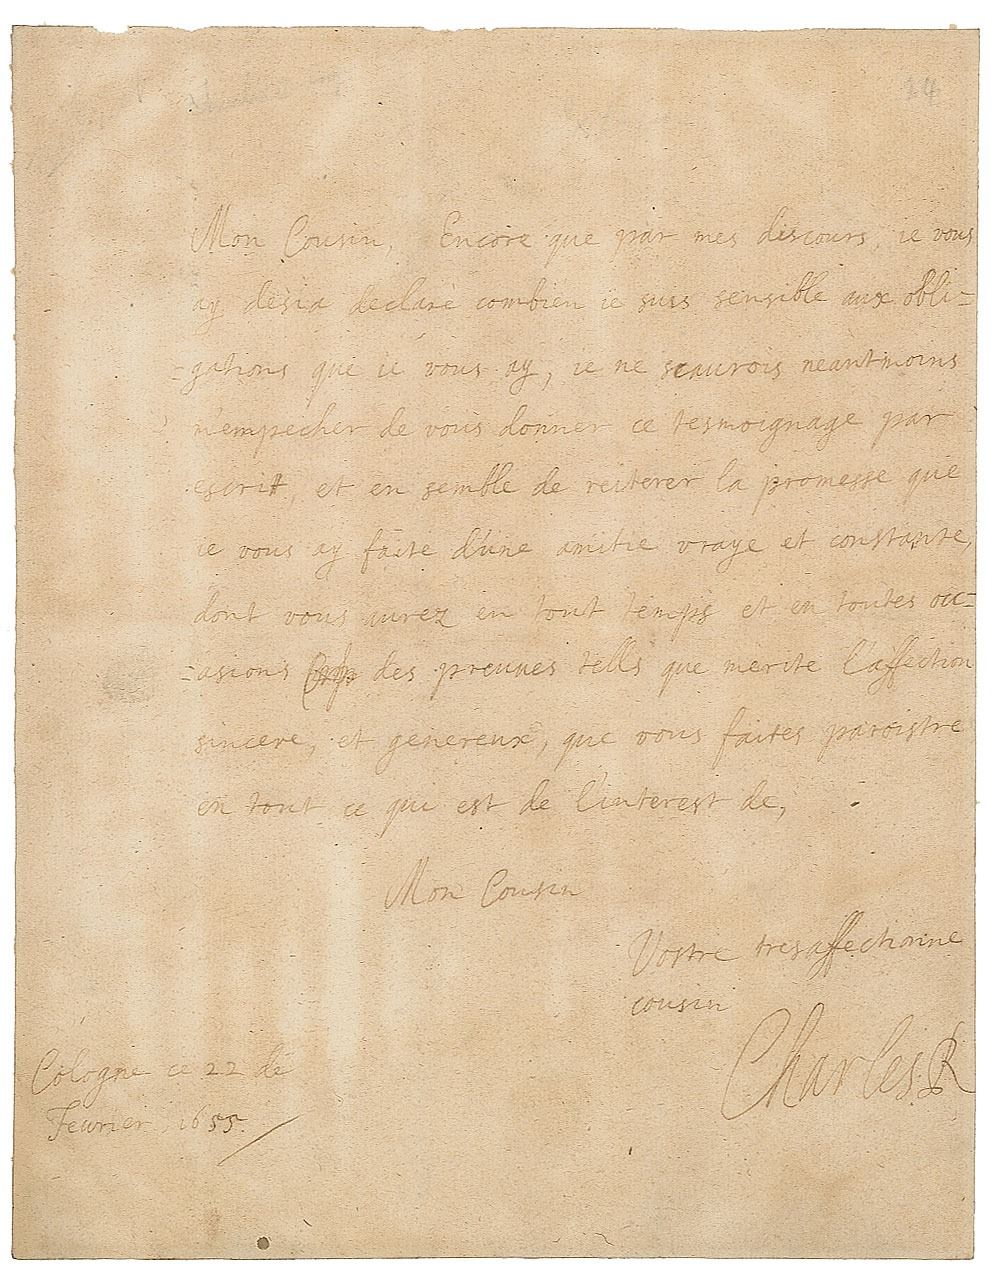 14
Mon Cousin, Encore que par mes discours, ie vous
ay desia declaré combien ie suis sensible aux obli=
=gations que ie vous ay, ie ne scaurois neantmoins
m'empecher de vous donner ce tesmoignage par
escrit, et en semble de reiterer la promesse que
ie vous ay faite d'une amitie vraye et constante,
dont vous aurez en tout temps et en toutes occ=
=asions des preuues tells que merite l'affection
sincere, et genereux, que vous faites paroistre
en tout ce qui est de l'interest de,
Mon Cousin
Vostre tresaffectionne
cousin
Charles R
Cologne ce 22 de
Feurier 1655.